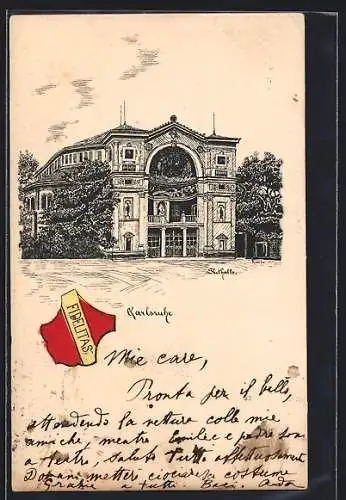 Festhalle.
Karlsruhe
FIDELITAS
Mie care,
Pronta per il ballo,
attendendo la vettura colle mie
amiche, mentre Emilie e padre son
a teatro, saluto tutti affettuosamente
Domani metterò costume
Grazie a tutti Baci Ada